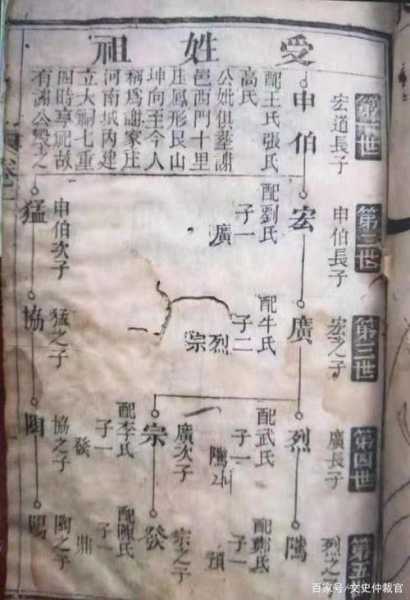 受姓祖
第一世
宏道長子
申伯
配王氏張氏
高氏
公妣俱葬謝
邑西門十里
庄鳳形艮山
坤向至今人
稱為謝家庄
河南城內建
立大祠七重
四時享祀故
有謝公殿之
第二世
申伯長子
宏
配劉氏
子一
廣
申伯次子
猛
第三世
宏之子
廣
配牛氏
子二
烈
宗
猛之子
協
第四世
廣長子
烈
配武氏
子一
廣次子
宗
配李氏
子一
發
協之子
陶
第五
烈之子
配鄭氏
子一
預
宗之子
發
配陳氏
子一
鼎
陶之子
百家号/文史仲裁官